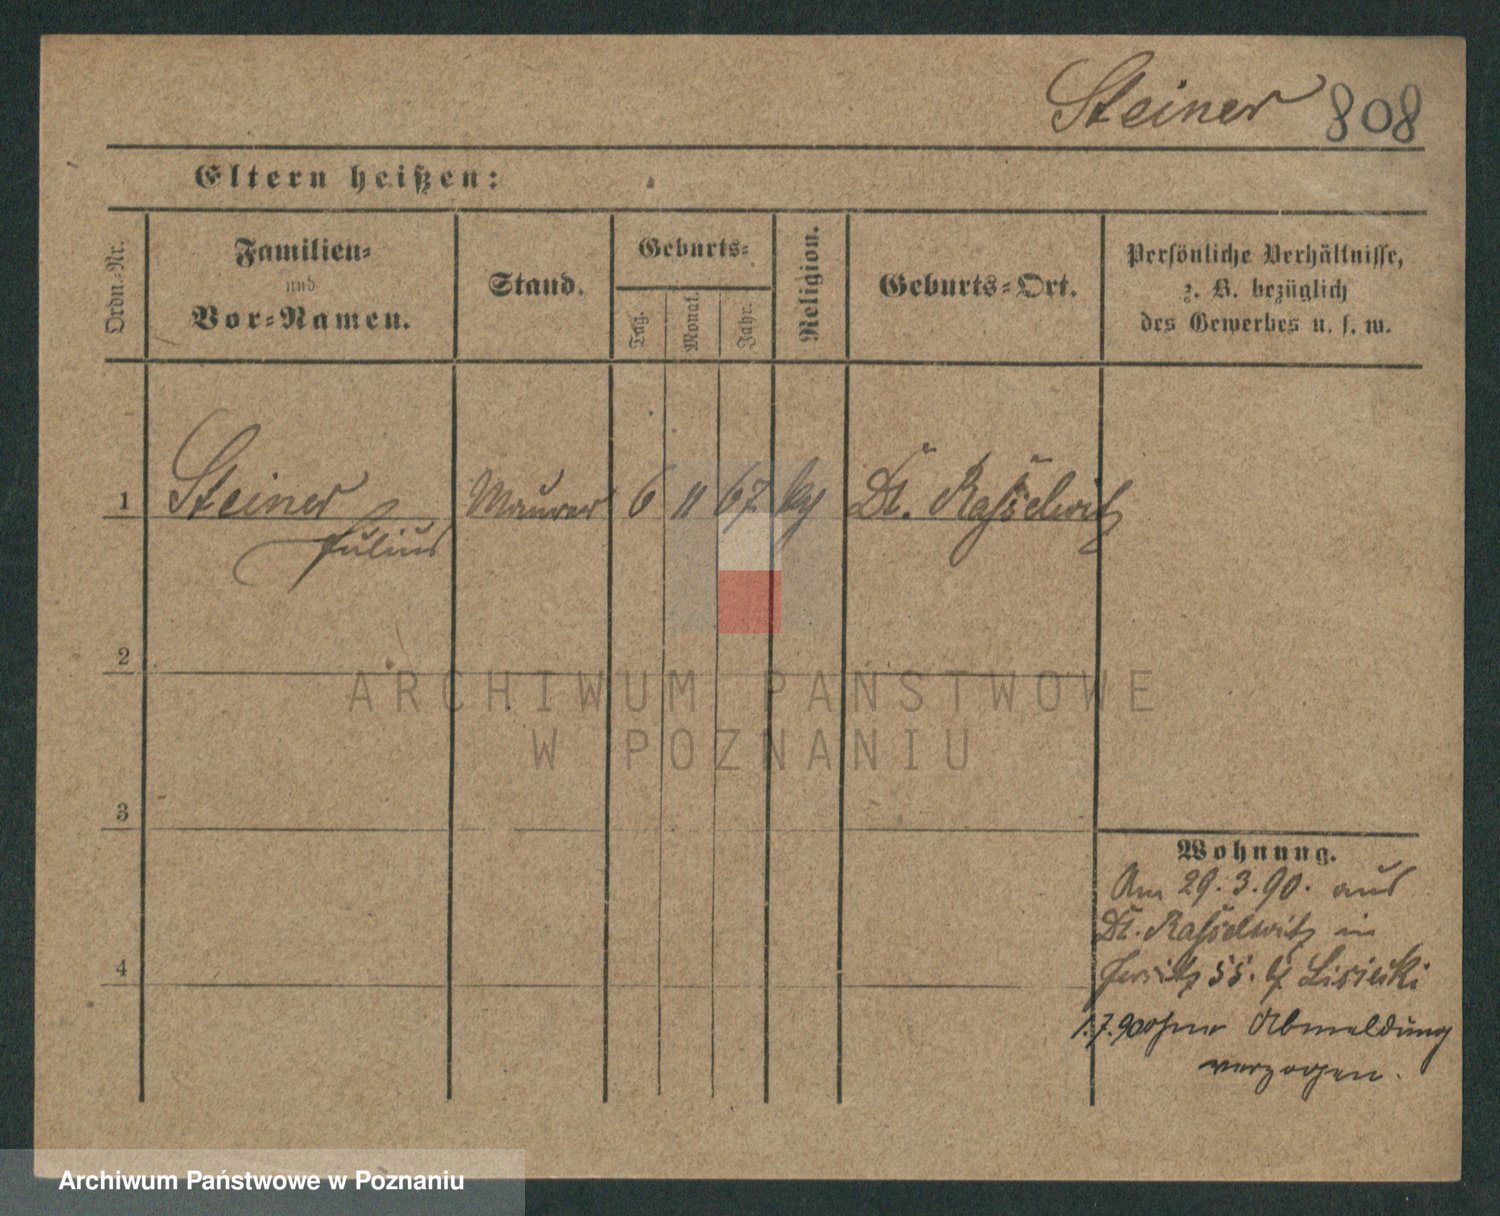 Steiner 808
Eltern heißen:
Ordn.-Nr.
Familien-
und
Vor-Namen.
Stand.
Geburts-
Tag.
Monat.
Jahr.
Religion.
Geburts-Ort.
Persönliche Verhältnisse,
z. B. bezüglich
des Gewerbes u. s. w.
1 Steiner Maurer 6 11 67. Dt. Rasselwitz
Julius
2
3
4
Wohnung.
Am 29.3.90. aus
Dt. Rasselwitz in
Jersitz 55. b/ Lisiecki
1.7.90 ohne Abmeldung
verzogen.
ARCHIWUM PAŃSTWOWE
W POZNANIU
Archiwum Państwowe w Poznaniu